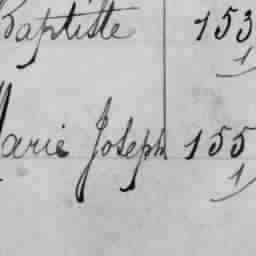 Baptiste 153
1
Marie Joseph 155
1